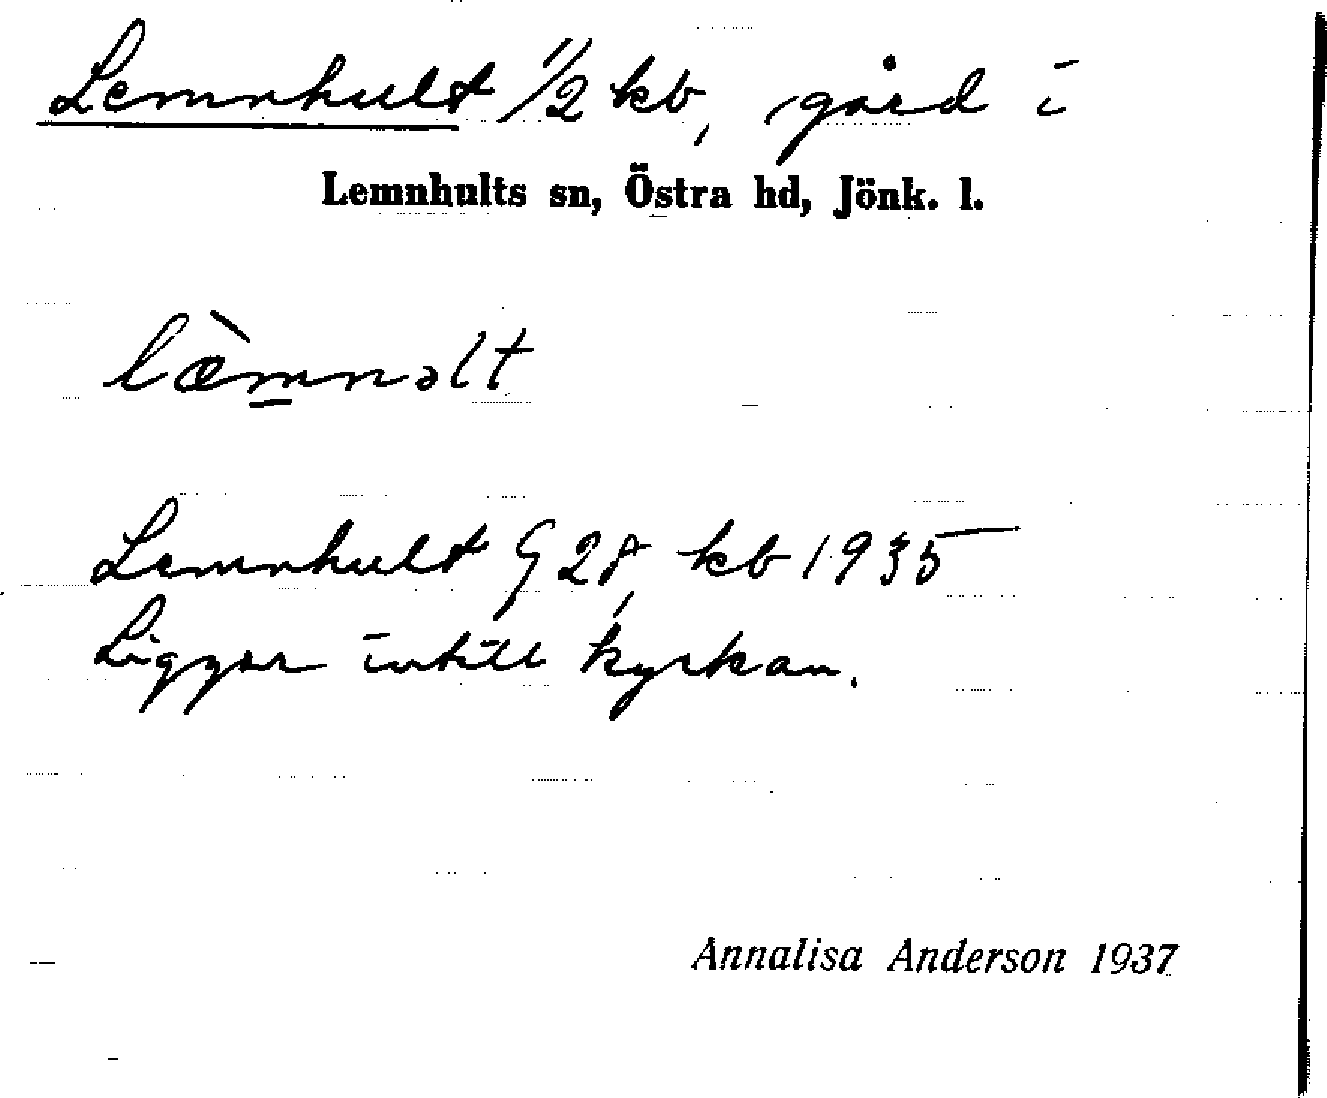 Lemnhult 1/2 kb, gård i
Lemnhults sn, Östra hd, Jönk. l.
læ̀m̲nəlt
Lemnhult G 28, kb 1935
Ligger intill kyrkan.
Annalisa Anderson 1937